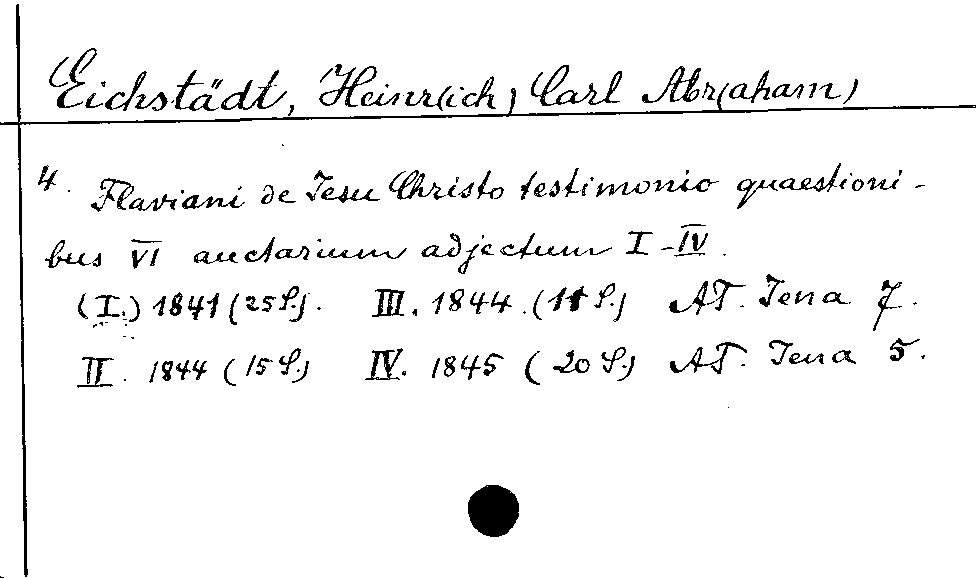 Eichstädt, Heinr(ich) Carl Abr(aham)
4. Flaviani de Jesu Christo testimonio quaestioni-
bus VI auctarium adjectum I-IV.
(I.) 1841 (25 S.). III. 1844. (11 S.) AT. Jena 7.
II. 1844 (15 S.) IV. 1845 (20 S.) AT. Jena 5.